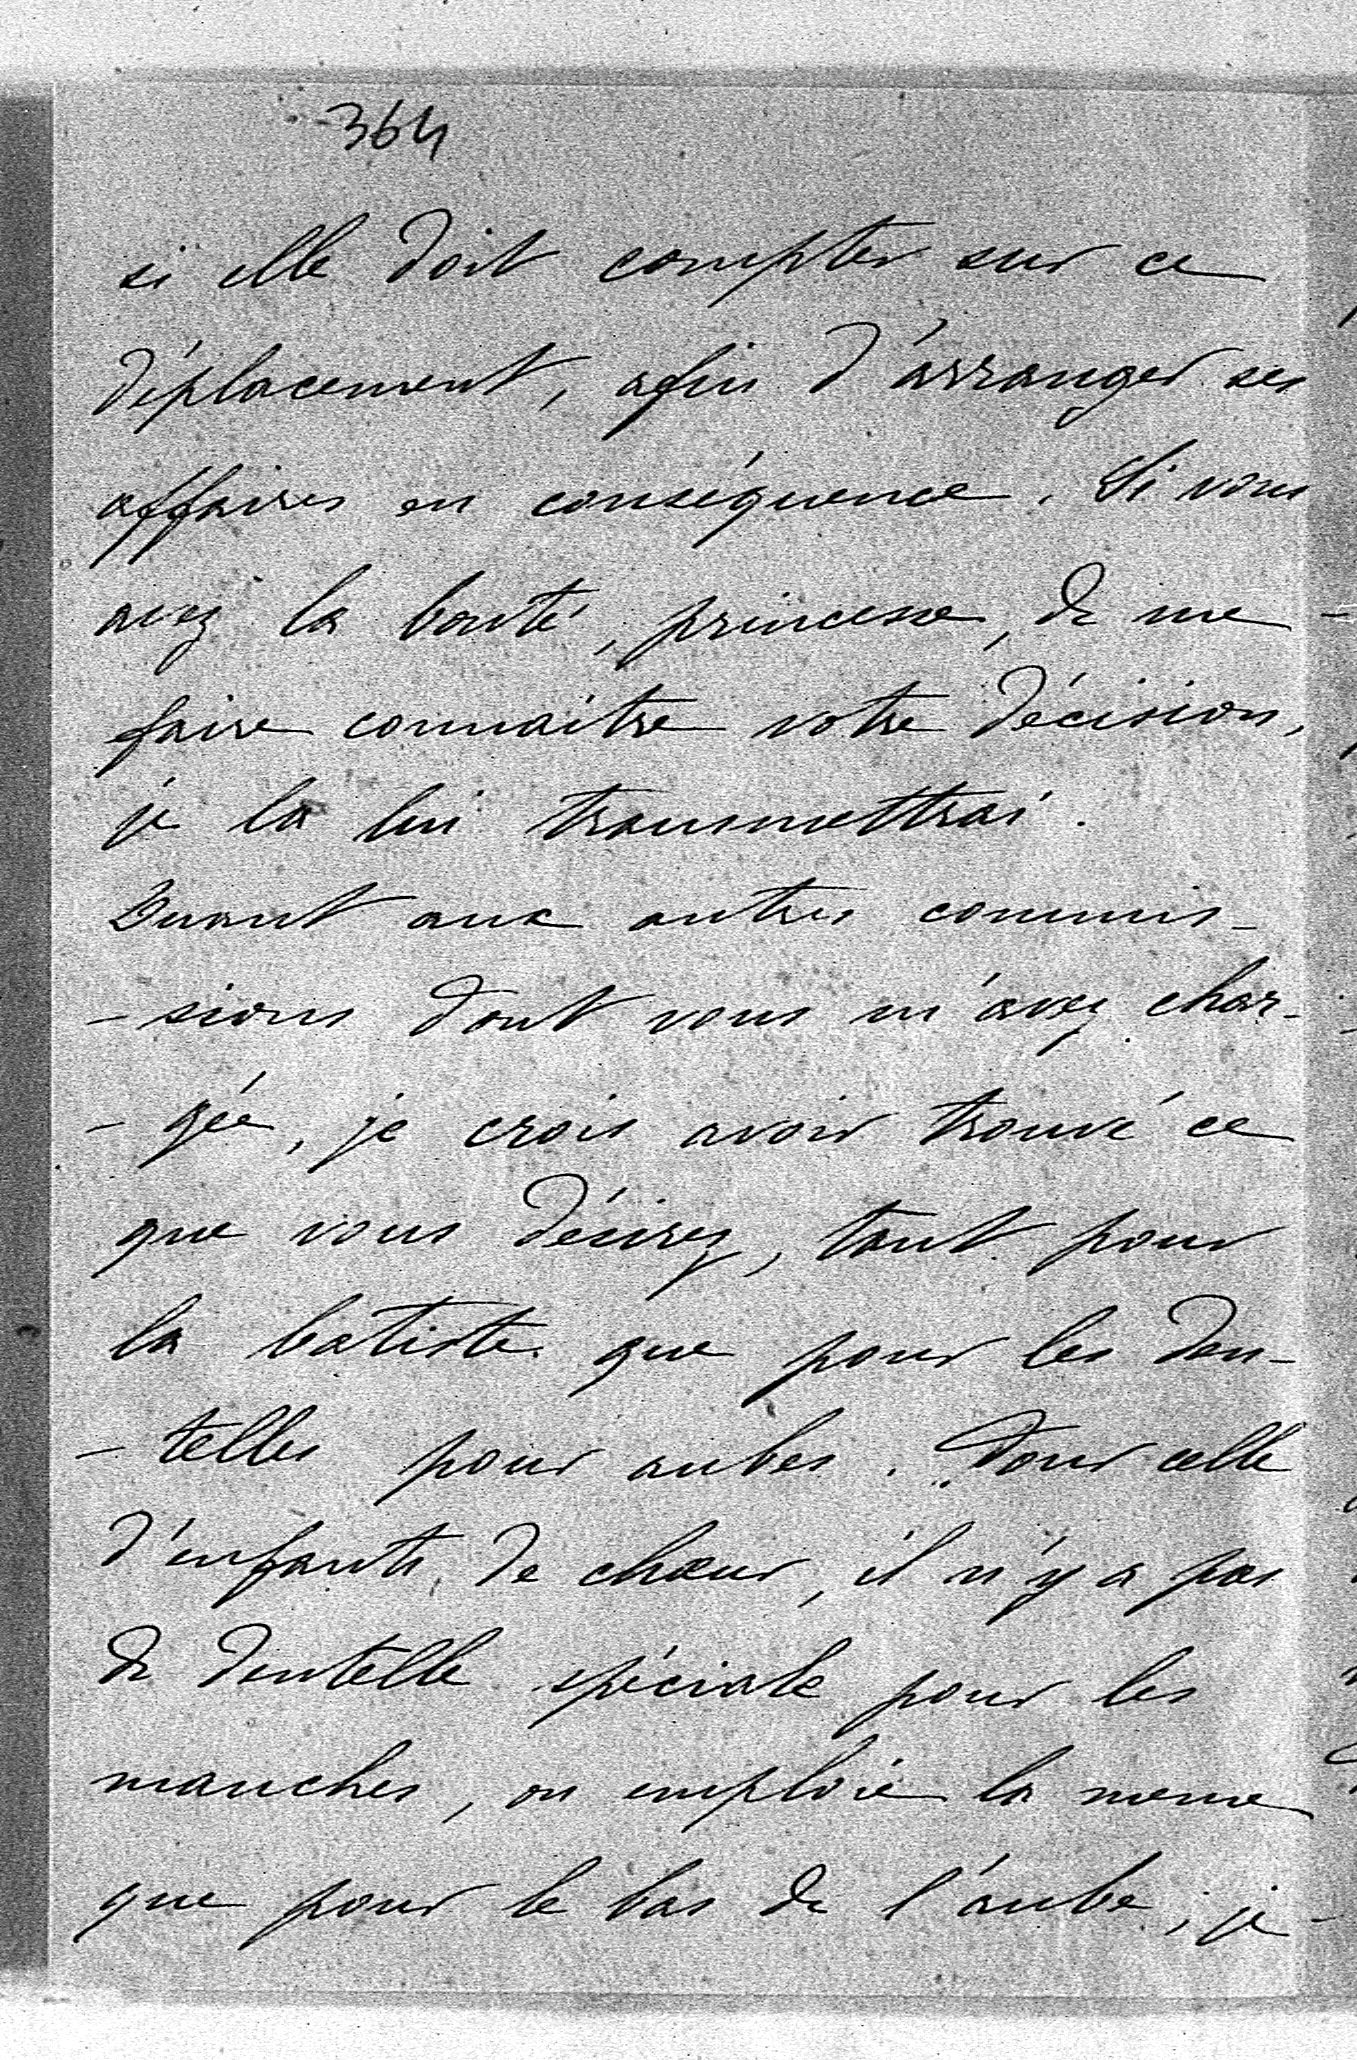 364
si elle doit compter sur ce
déplacement, afin d'arranger ses
affaires en conséquence. Si vous
avez la bonté, princesse, de me
faire connaître votre décision,
je la lui transmettrai.
Quant aux autres commis-
- sions dont vous m'avez char-
- gée, je crois avoir trouvé ce
que vous désirez, tant pour
la batiste que pour les den-
- telles pour aubes. Pour celle
d'enfants de chœur, il n'y a pas
de dentelle spéciale pour les
manches, on emploie la meme
que pour le bas de l'aube, je